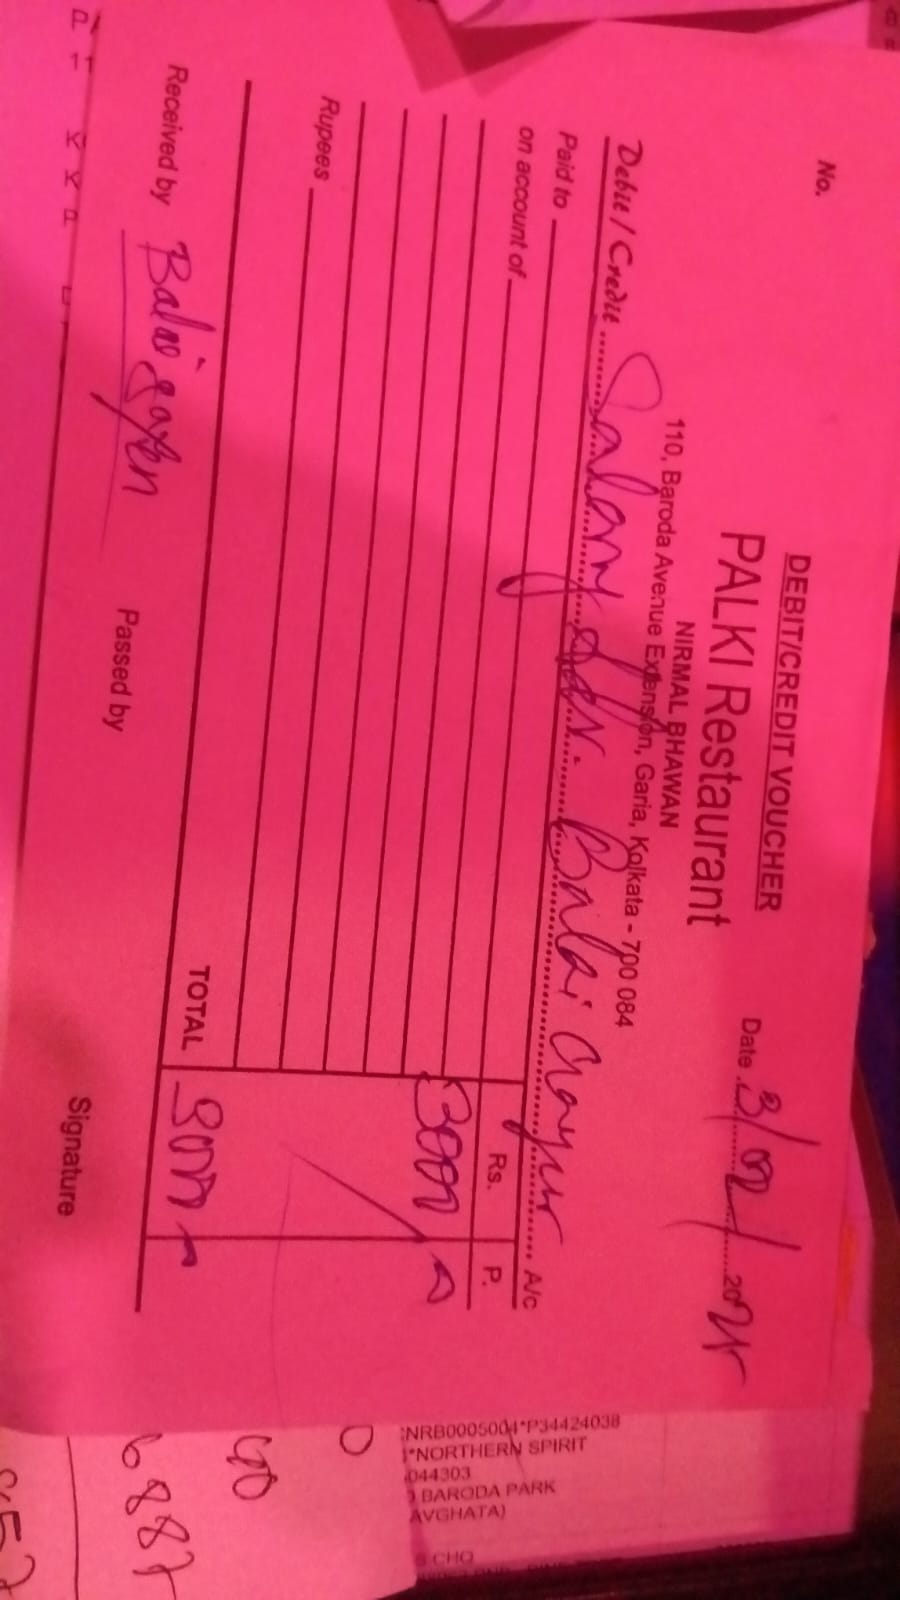 No.
DEBIT/CREDIT VOUCHER
PALKI Restaurant
NIRMAL BHAWAN
110, Baroda Avenue Extension, Garia, Kolkata - 700 084
Date 3/02/2025
Debit / Credit Salary Balai Gayen A/c
Paid to
on account of
Rs. P.
3000
Rupees
TOTAL 3000
Received by Balai gayen
Passed by
Signature
NRB0005004*P34424038
*NORTHERN SPIRIT
044303
BARODA PARK
AVGHATA)
S CHO
6887